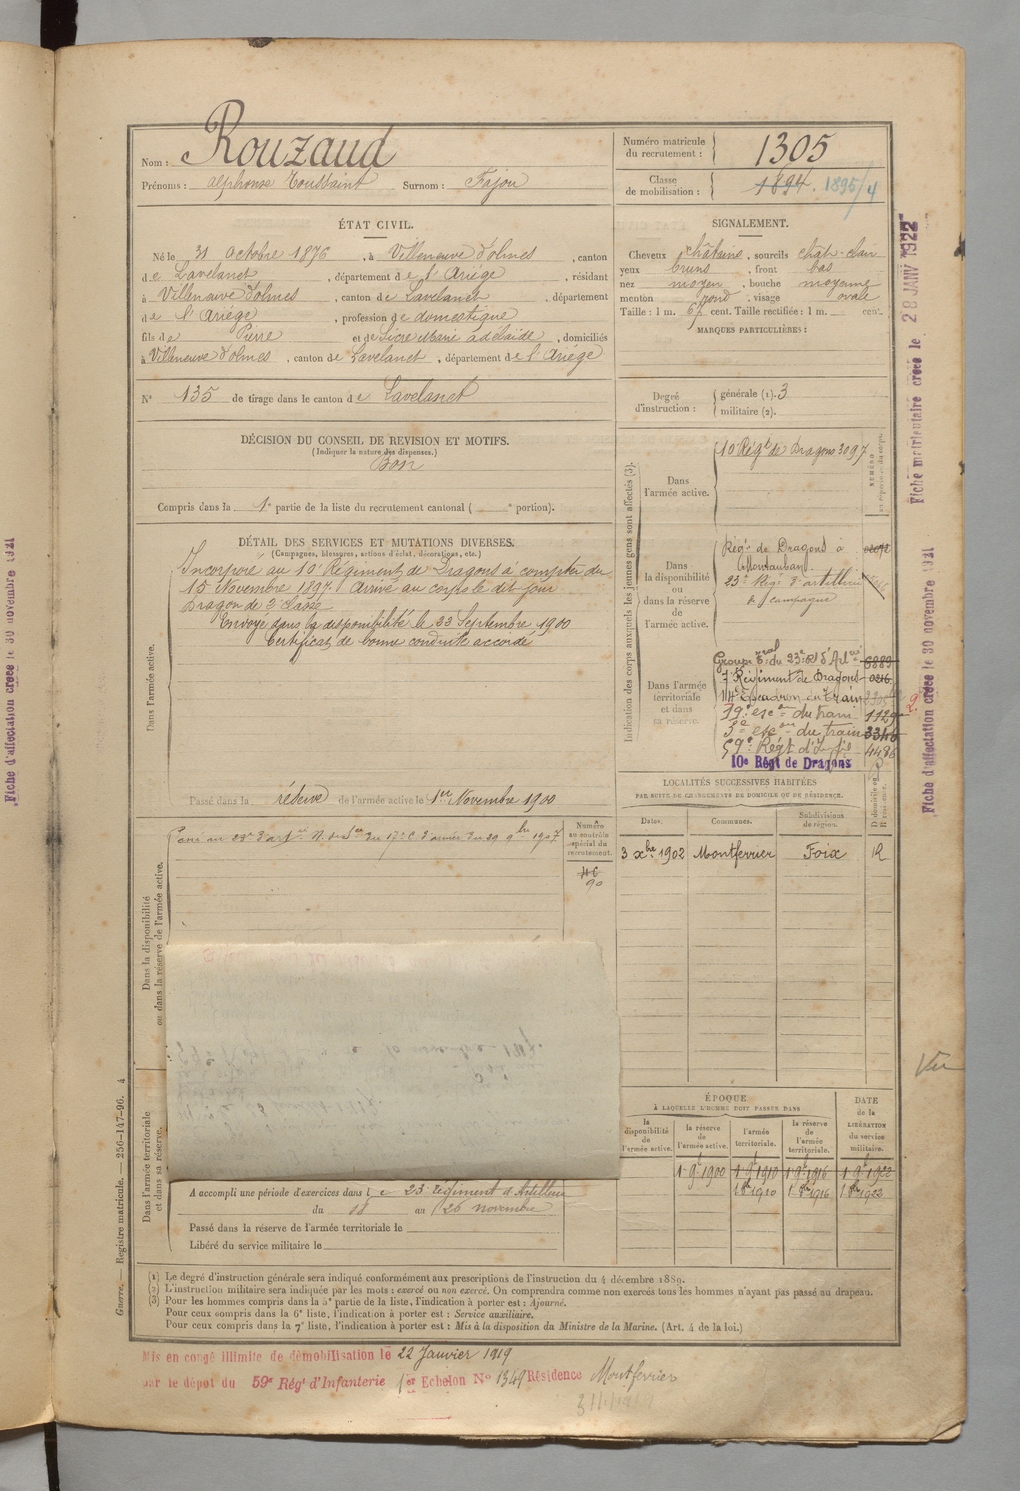 Nom : Rouzaud
Prénoms : Alphonse Toussaint Surnom : Fajou
Numéro matricule du recrutement : 1305
Classe de mobilisation : 1894. 1895/4
ÉTAT CIVIL.
Né le 31 Octobre 1876, à Villeneuve d'olmes, canton
de Lavelanet, département de l'Ariége, résidant
à Villeneuve d'olmes, canton de Lavelanet, département
de l'Ariége, profession de domestique
fils de Pierre et de Sicre Marie adélaïde, domiciliés
à Villeneuve d'olmes, canton de Lavelanet, département de l'Ariége
N° 135 de tirage dans le canton de Lavelanet
SIGNALEMENT.
Cheveux châtains, sourcils chât-clair
yeux bruns, front bas
nez moyen, bouche moyenne
menton rond, visage ovale
Taille : 1 m. 67 cent. Taille rectifiée : 1 m. cent.
MARQUES PARTICULIÈRES :
Degré d'instruction : générale (1). 3
militaire (2).
DÉCISION DU CONSEIL DE REVISION ET MOTIFS.
(Indiquer la nature des dispenses.)
Bon
Compris dans la 1e partie de la liste du recrutement cantonal ( e portion).
DÉTAIL DES SERVICES ET MUTATIONS DIVERSES.
(Campagnes, blessures, actions d'éclat, décorations, etc.)
Dans l'armée active.
Incorporé au 10e Régiment de Dragons à compter du
15 Novembre 1897. Arrivé au corps le dit jour
Dragon de 2e Classe
Envoyé dans la disponibilité le 23 Septembre 1900
Certificat de bonne conduite accordé
Passé dans la réserve de l'armée active le 1er Novembre 1900
Indication des corps auxquels les jeunes gens sont affectés (3).
Dans l'armée active.
10e Régt de Dragons 3097
Dans la disponibilité ou dans la réserve de l'armée active.
Régt de Dragons à
Montauban.
23e Régt d'artillerie
de campagne
Dans l'armée territoriale et dans sa réserve.
Groupe Tral du 23e Rt d'Arie 6889
7e Régiment de Dragons 0216
1/4 Escadron du Train
39e escon du train 1129
3e escon du train 3346
59e Régt d'Infie 4486
10e Régt de Dragons
LOCALITÉS SUCCESSIVES HABITÉES
PAR SUITE DE CHANGEMENTS DE DOMICILE OU DE RÉSIDENCE.
Dates. Communes. Subdivisions de région. D domicile ou R résidence.
3 xbre 1902 Montferrier Foix R
Dans la disponibilité ou dans la réserve de l'armée active.
Numéro au contrôle spécial du recrutement.
90
Dans l'armée territoriale et dans sa réserve.
A accompli une période d'exercices dans le 23e régiment d'Artillerie
du 10 au 26 novembre
Passé dans la réserve de l'armée territoriale le
Libéré du service militaire le
ÉPOQUE
À LAQUELLE L'HOMME DOIT PASSER DANS
la disponibilité de l'armée active. la réserve de l'armée active. l'armée territoriale. la réserve de l'armée territoriale.
DATE de la LIBÉRATION du service militaire.
1 9bre 1900 1 9bre 1910 1 9bre 1916 1 9bre 1922
1 8bre 1910 1 8bre 1916 1 8bre 1922
(1) Le degré d'instruction générale sera indiqué conformément aux prescriptions de l'instruction du 4 décembre 1889.
(2) L'instruction militaire sera indiquée par les mots : exercé ou non exercé. On comprendra comme non exercés tous les hommes n'ayant pas passé au drapeau.
(3) Pour les hommes compris dans la 5e partie de la liste, l'indication à porter est : Ajourné.
Pour ceux compris dans la 6e liste, l'indication à porter est : Service auxiliaire.
Pour ceux compris dans la 7e liste, l'indication à porter est : Mis à la disposition du Ministre de la Marine. (Art. 4 de la loi.)
Mis en congé illimité de démobilisation le 22 Janvier 1919
par le dépôt du 59e Régt d'Infanterie 1er Echelon N° 1349 Résidence Montferrier
Guerre. — Registre matricule. — 256-147-96. 4
Fiche d'affectation créée le 30 novembre 1921
Fiche matriculaire créée le 28 JANV 1922
Fiche d'affectation créée le 30 novembre 1921
Vu